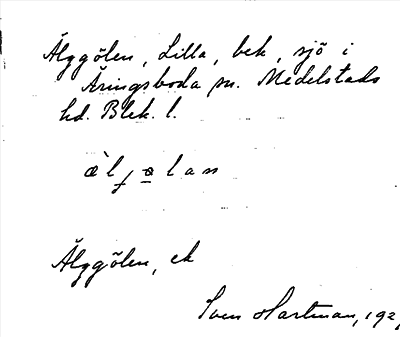 Älggölen, Lilla, bek, sjö i
Åringsboda sn. Medelstads
hd. Blek. l.
æ̀lʃəlan
Älggölen, ek
Sven Hartman, 192